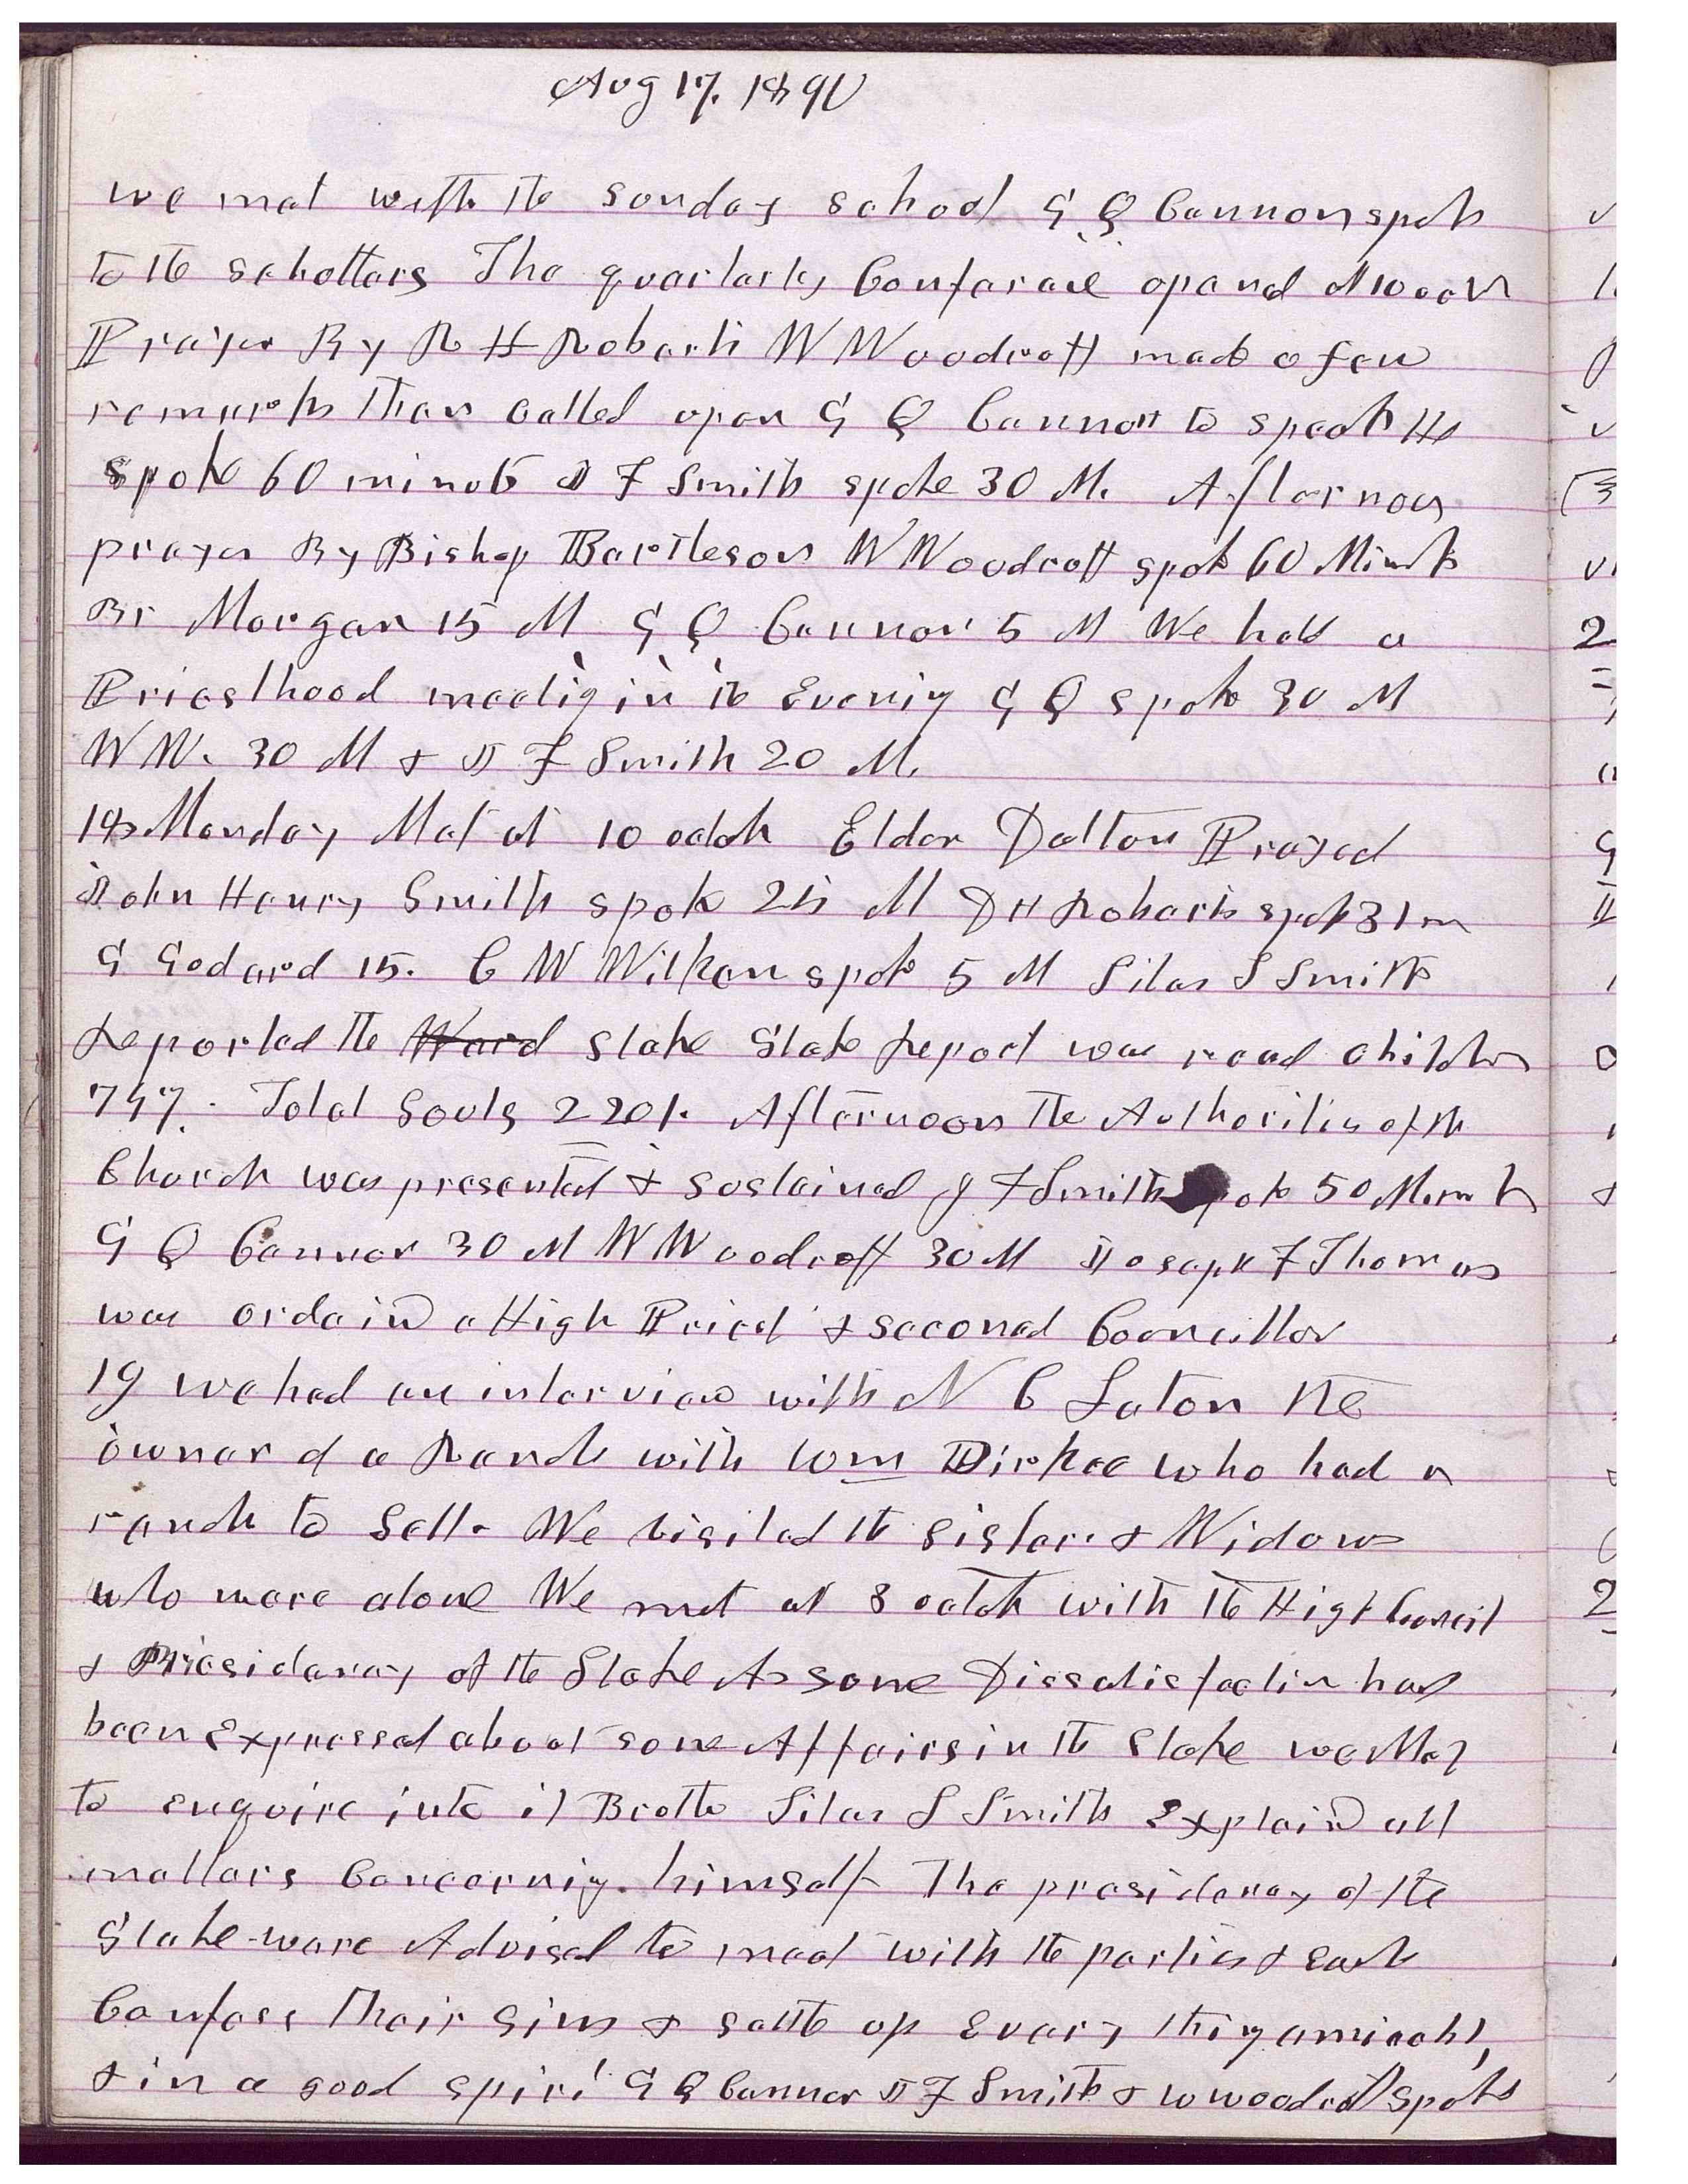 Aug 17, 1890
we met with the Sunday school G Q Cannon spoke
to the schollars The quarterly Conferance opened At 10 oclok
Prayer By R H Roberts W Woodruff made a few
remarks then called upon G Q Cannon to speak He
spoke 60 minuts J F Smith spoke 30 M. Afternoon
prayer By Bishop Bartleson W Woodruff spoke 60 Minuts
Br Morgan 15 M G Q Cannon 5 M We held a
Priesthood meeting in the Evenig G Q spoke 30 M
WW. 30 M & J F Smith 20 M.
18 Monday Met at 10 oclok Elder Dalton Prayed
John Henry Smith spoke 25 M D H Roberts spoke 31 m
G Godard 15. C W Wilken spoke 5 M Silas S Smith
Reported the Ward stake Stake Report was read children
747. Total Souls 2201. Afternoon The Authorities of the
Church was presented & sustained J F Smith spoke 50 Minuts
G Q Cannon 30 M W Woodruff 30 M Joseph F Thomas
was ordaind a High Priest & second Councillor
19 we had an interview with N C Laton the
owner of a Ranch with Wm Dirkee who had a
ranch to sell. We visited the sisters & Widows
who were alone We met at 8 oclok with the High Council
& Presidency of the Stake As some Dissatisfaction had
been Expressed about some Affairs in the Stake we Met
to enquire into it Brother Silas S Smith Explaind all
matters Concernig himself The presidency of the
Stake ware Advised to meet with the parties & each
Confess their sins & settle up Every thing amicably
& in a good spirit G Q Cannon J F Smith & W Woodruff spoke